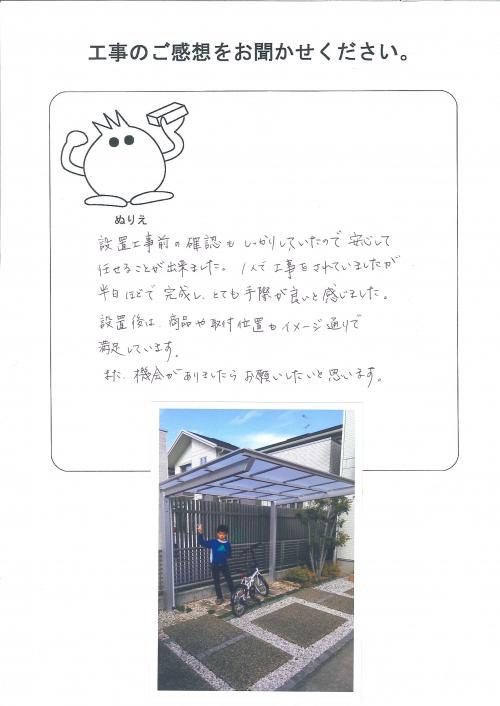 工事のご感想をお聞かせください。
ぬりえ
設置工事前の確認もしっかりしていたので安心して
任せることが出来ました。1人で工事をされていましたが
半日ほどで完成し、とても手際が良いと感じました。
設置後は、商品や取付位置もイメージ通りで
満足しています。
また、機会がありましたらお願いしたいと思います。